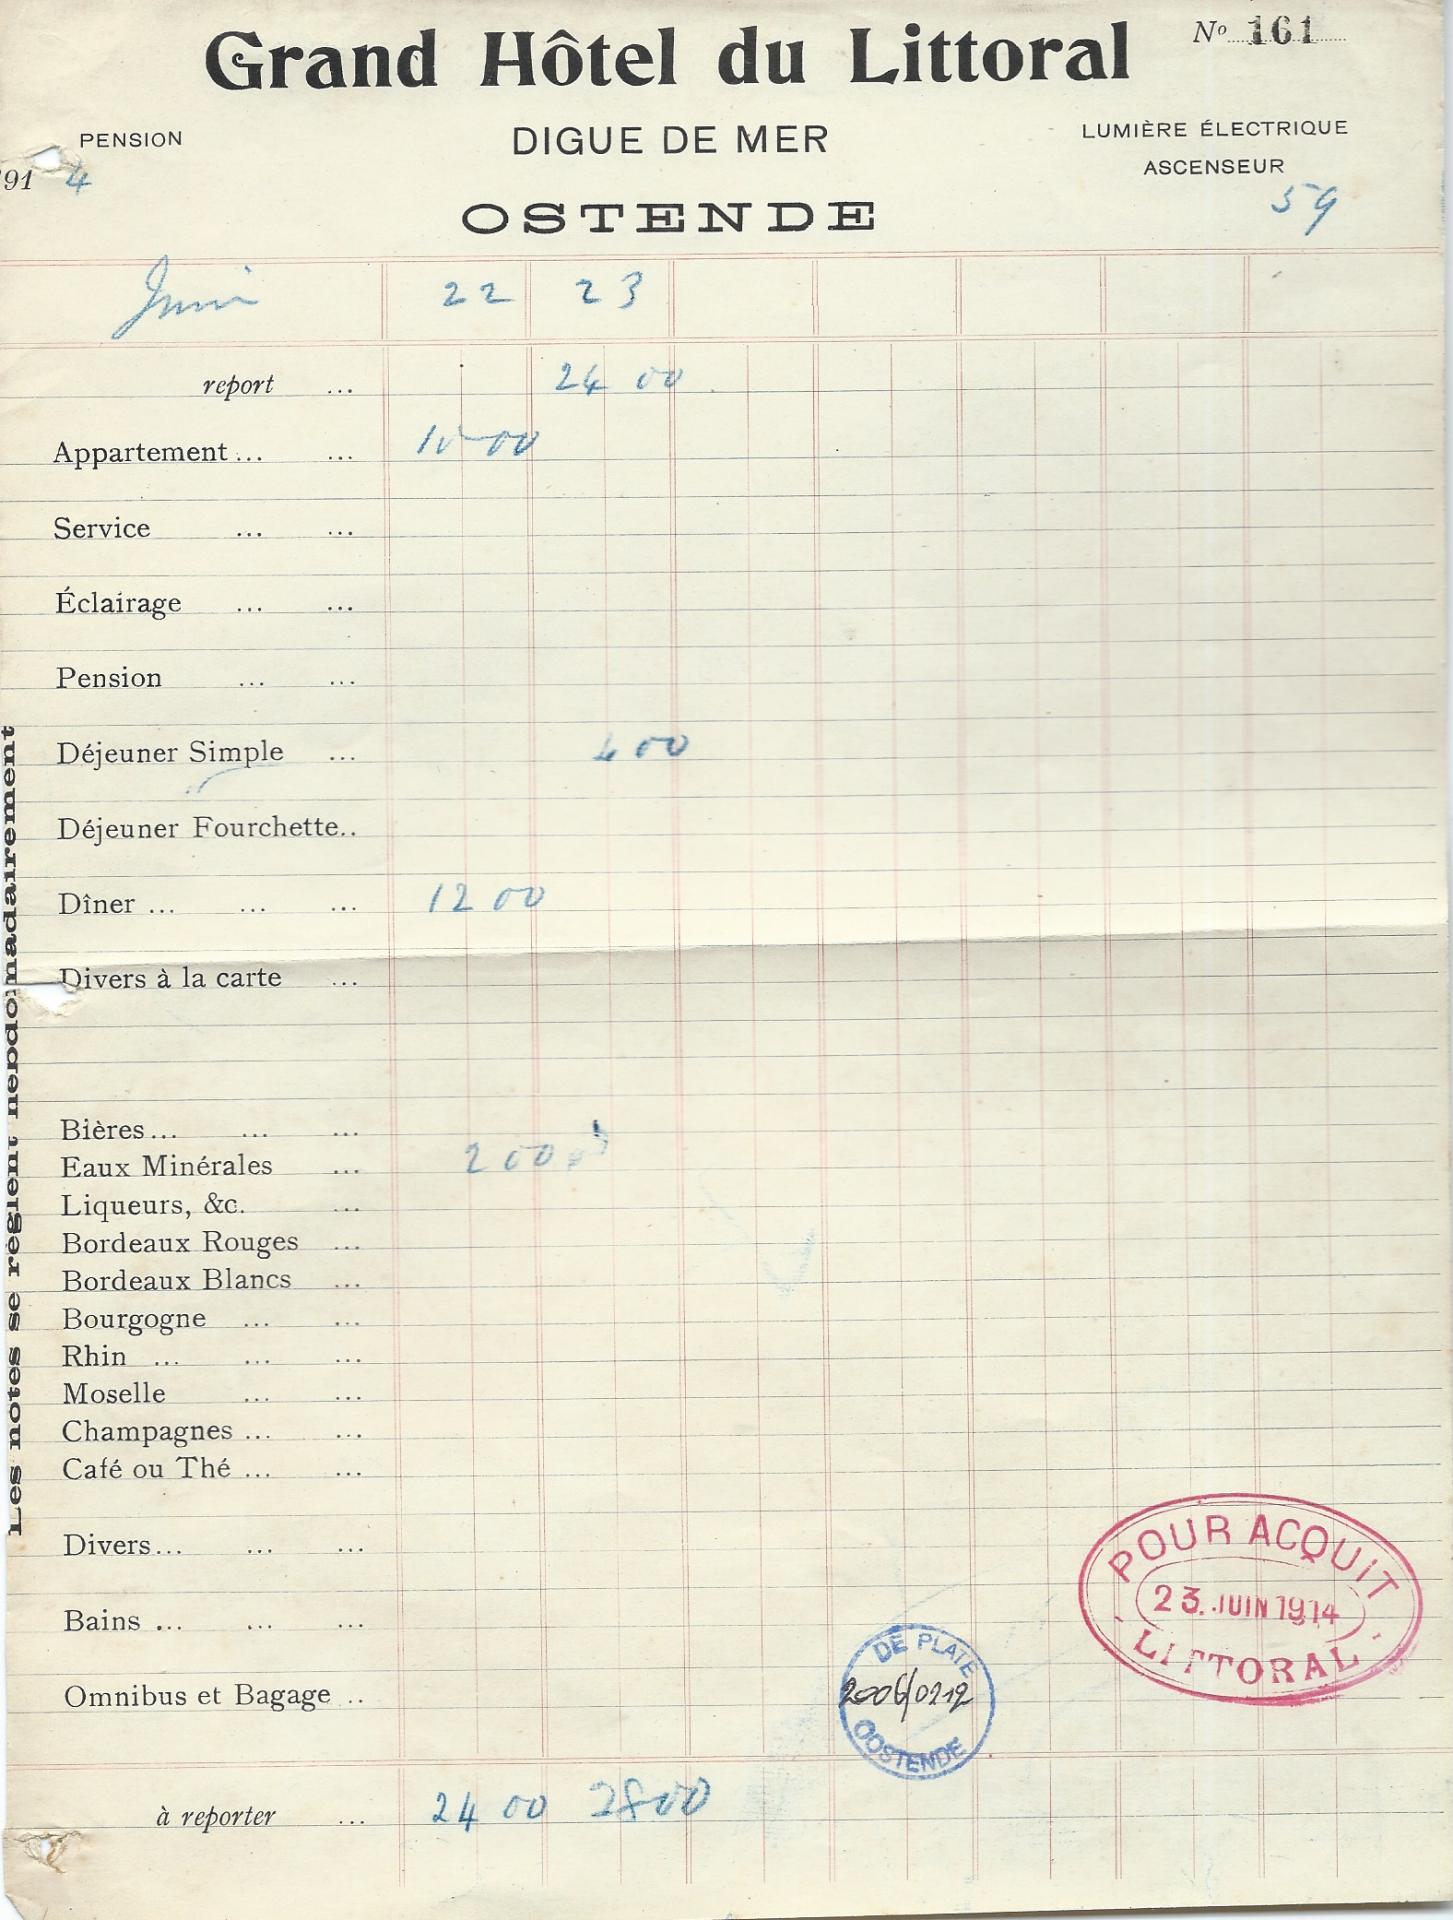 Grand Hôtel du Littoral
Nº 161
PENSION
DIGUE DE MER
LUMIÈRE ÉLECTRIQUE
ASCENSEUR
191 4
59
OSTENDE
Juin 22 23
report ... 24 00
Appartement ... ... 10 00
Service ... ...
Éclairage ... ...
Pension ... ...
Déjeuner Simple ... 4 00
Déjeuner Fourchette..
Dîner ... ... ... 12 00
Divers à la carte ...
Bières ... ... ...
Eaux Minérales ... 2 00
Liqueurs, &c. ...
Bordeaux Rouges ...
Bordeaux Blancs ...
Bourgogne ... ...
Rhin ... ... ...
Moselle ... ...
Champagnes ... ...
Café ou Thé ... ...
Divers ... ... ...
Bains ... ... ...
Omnibus et Bagage ..
à reporter ... 24 00 28 00
Les notes se règlent hebdomadairement
POUR ACQUIT
23. JUIN 1914
LITTORAL
DE PLATE
2006/0212
OOSTENDE